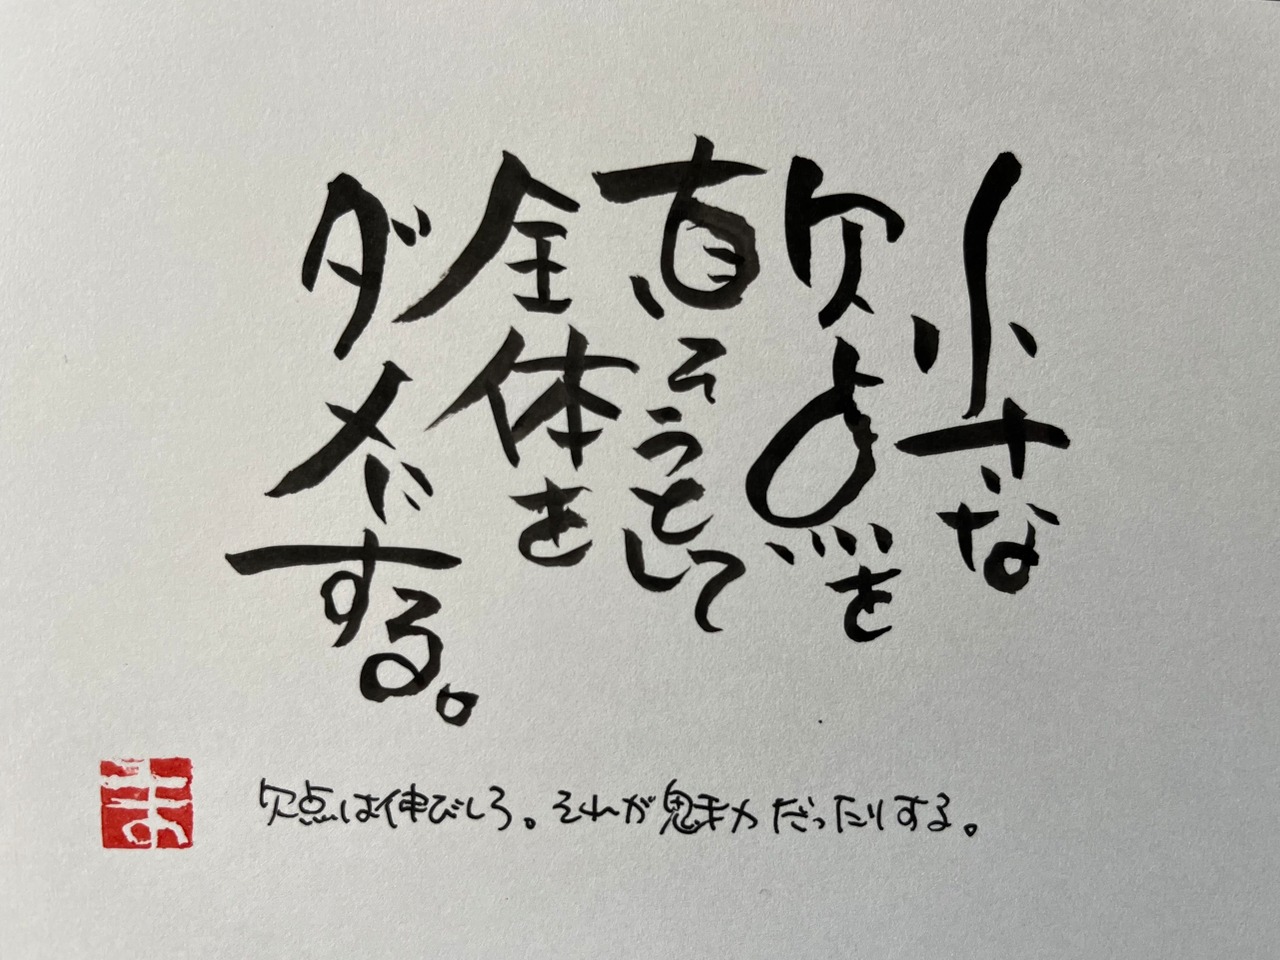 小さな
欠点を
直そうとして
全体を
ダメに
する。
欠点は伸びしろ。それが魅力だったりする。
ま